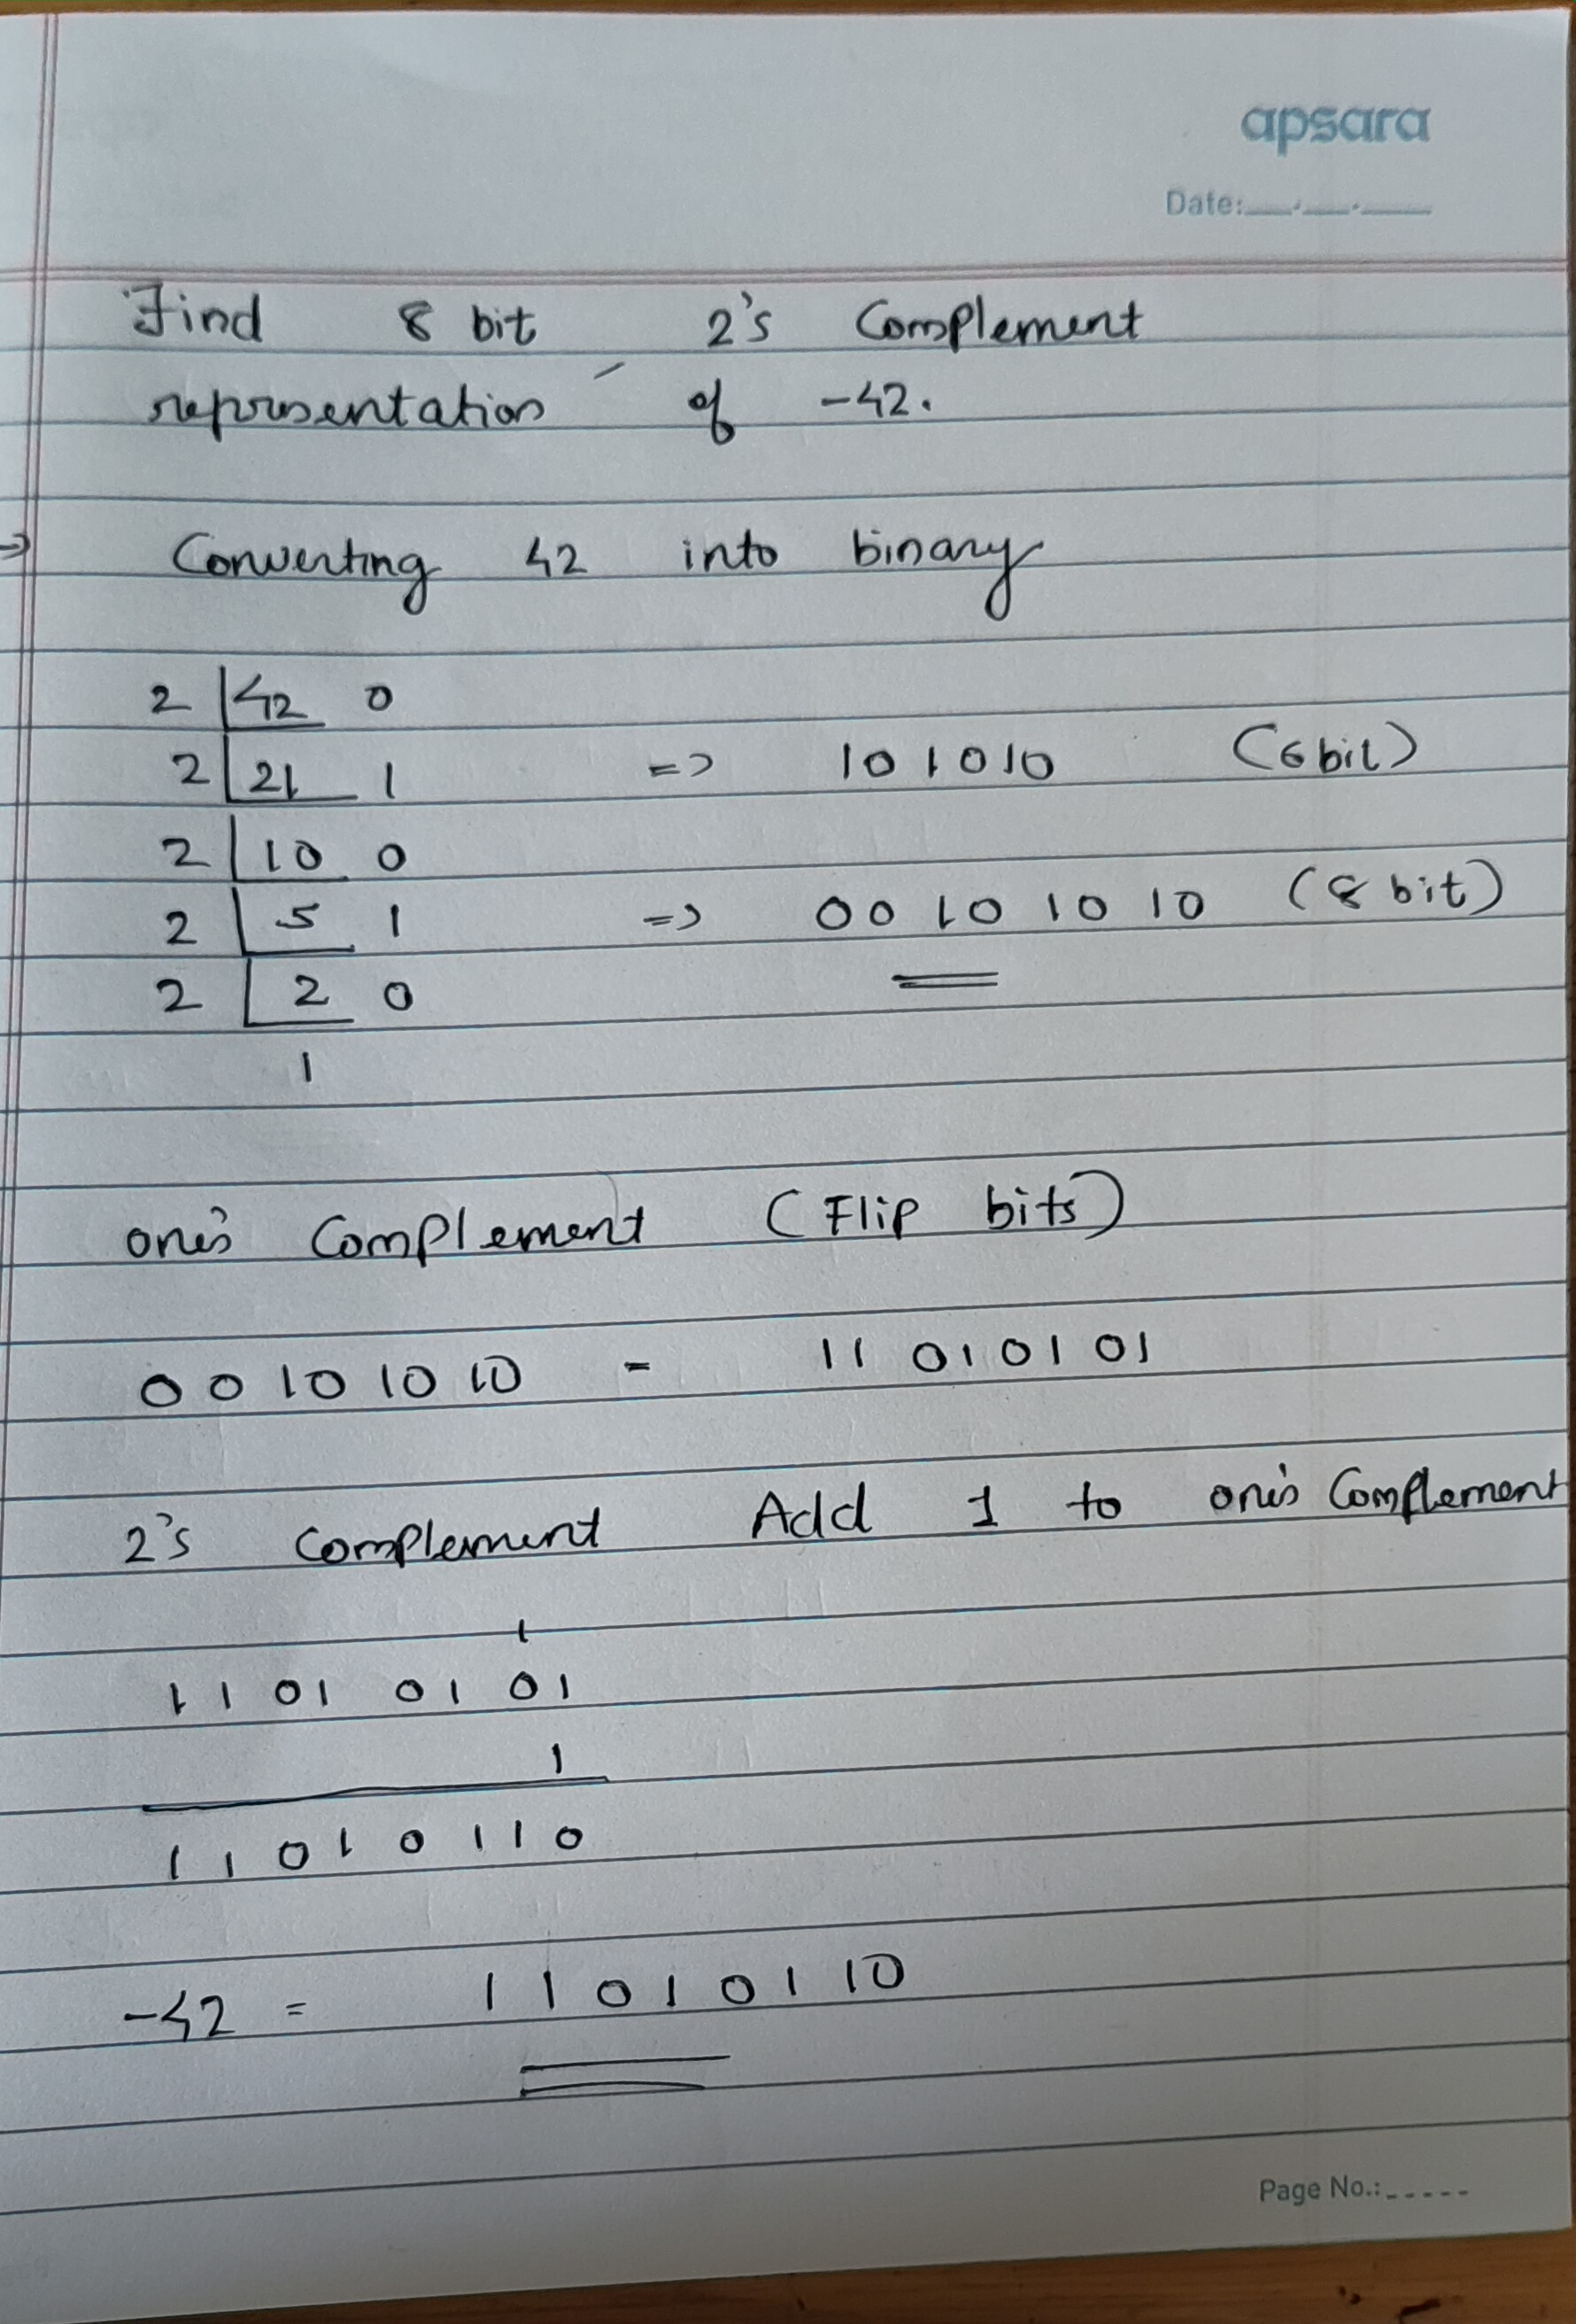 apsara
Date:__.__.__
Find 8 bit 2's Complement
representation of -42.
=> Converting 42 into binary
2 42 0
2 21 1 => 101010 (6bit)
2 10 0
2 5 1 => 00101010 (8 bit)
2 2 0
1
one's Complement (Flip bits)
00101010 - 11010101
2's complement Add 1 to one's Complement
1
11010101
1
11010110
-42 = 11010110
Page No.:-----